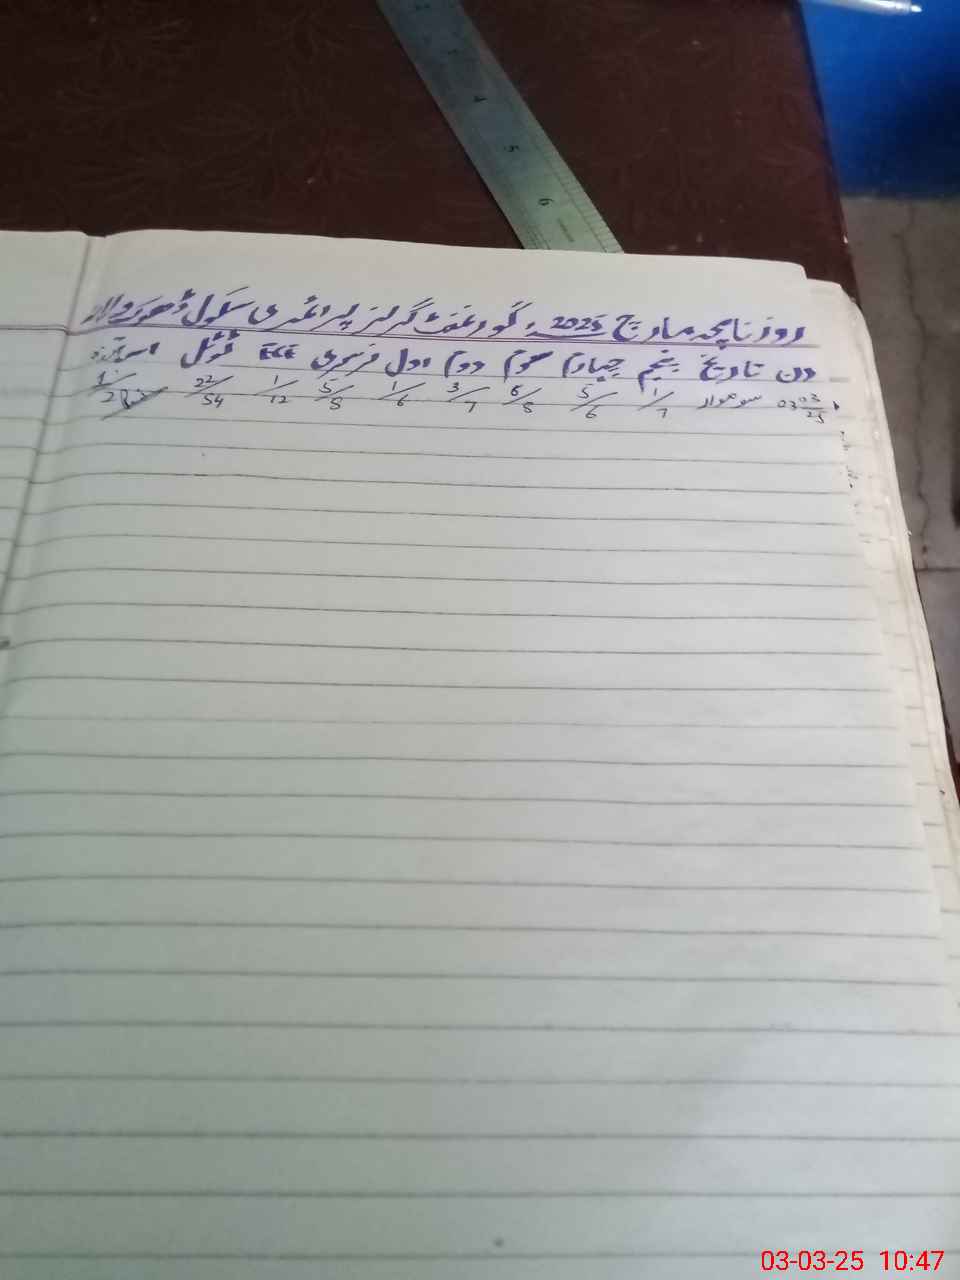 روزنامچہ مارچ 2025ء گورنمنٹ گرلز پرائمری سکول
دن تاریخ پنجم چہارم سوم دوم اول نرسری ECE ٹوٹل اساتذہ
03/03/25 سوموار 1/7 5/6 6/8 3/7 1/6 5/8 1/12 22/54 1/2
4 5 6
03-03-25 10:47